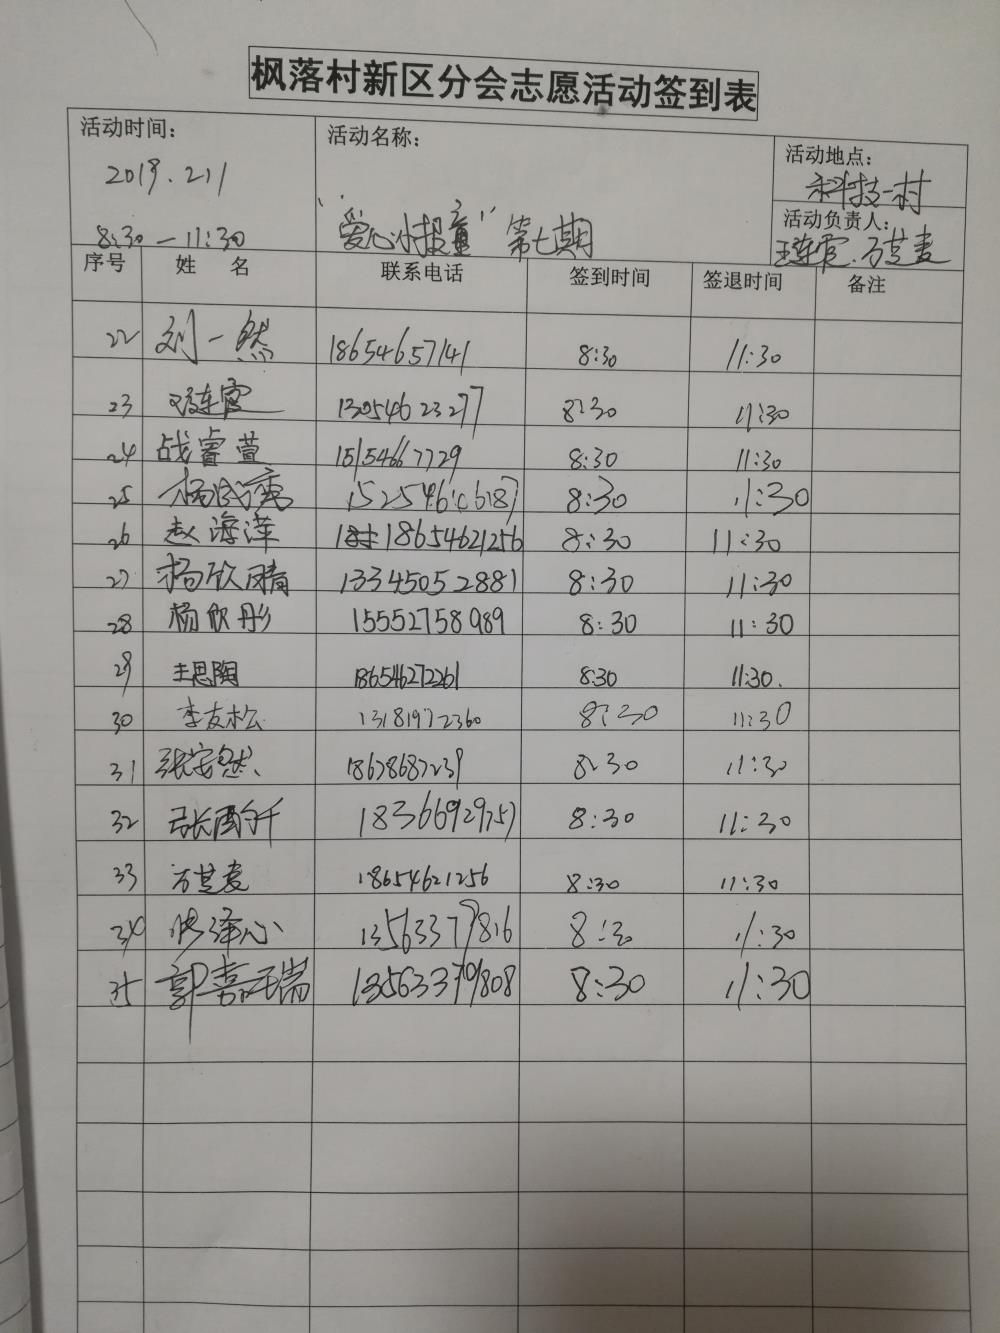 枫落村新区分会志愿活动签到表
活动时间： 活动名称： 活动地点：
2019.2.11 科技一村
8:30—11:30 “爱心小报童” 第七期 活动负责人：
王连霞、万芝麦
序号 姓 名 联系电话 签到时间 签退时间 备注
22 刘一然 18654657141 8:30 11:30
23 连霞 13054623277 8:30 11:30
24 战睿萱 15154667729 8:30 11:30
25 杨 8:30 11:30
26 赵海洋 18654621256 8:30 11:30
27 杨欣晴 13345052881 8:30 11:30
28 杨欣彤 15552758989 8:30 11:30
29 王思陶 186546272261 8:30 11:30.
30 李友松 13181972360 8:30 11:30
31 张安然 18678687239 8:30 11:30
32 张雨千 18366929757 8:30 11:30
33 万芝麦 18654621256 8:30 11:30
34 泽心 13563377816 8:30 11:30
35 郭嘉瑞 13563370808 8:30 11:30